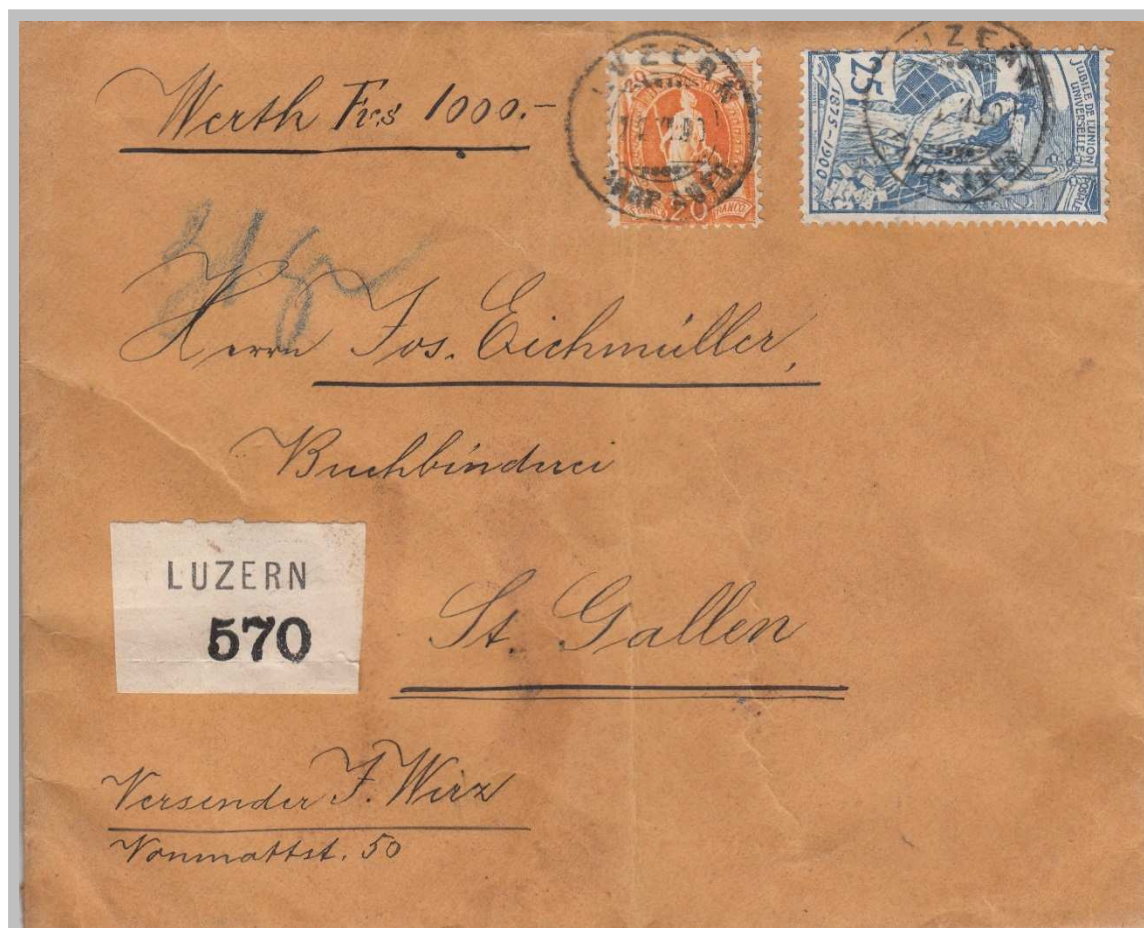 Werth Frs 1000.-
LUZERN
20
FRANCO
LUZERN
25
JUBILÉ DE L'UNION
POSTALE
UNIVERSELLE
1875-1900
Herrn Jos. Eichmüller,
Buchbinderei
LUZERN
570
St. Gallen
Versender J. Wirz
Vonmattst. 50